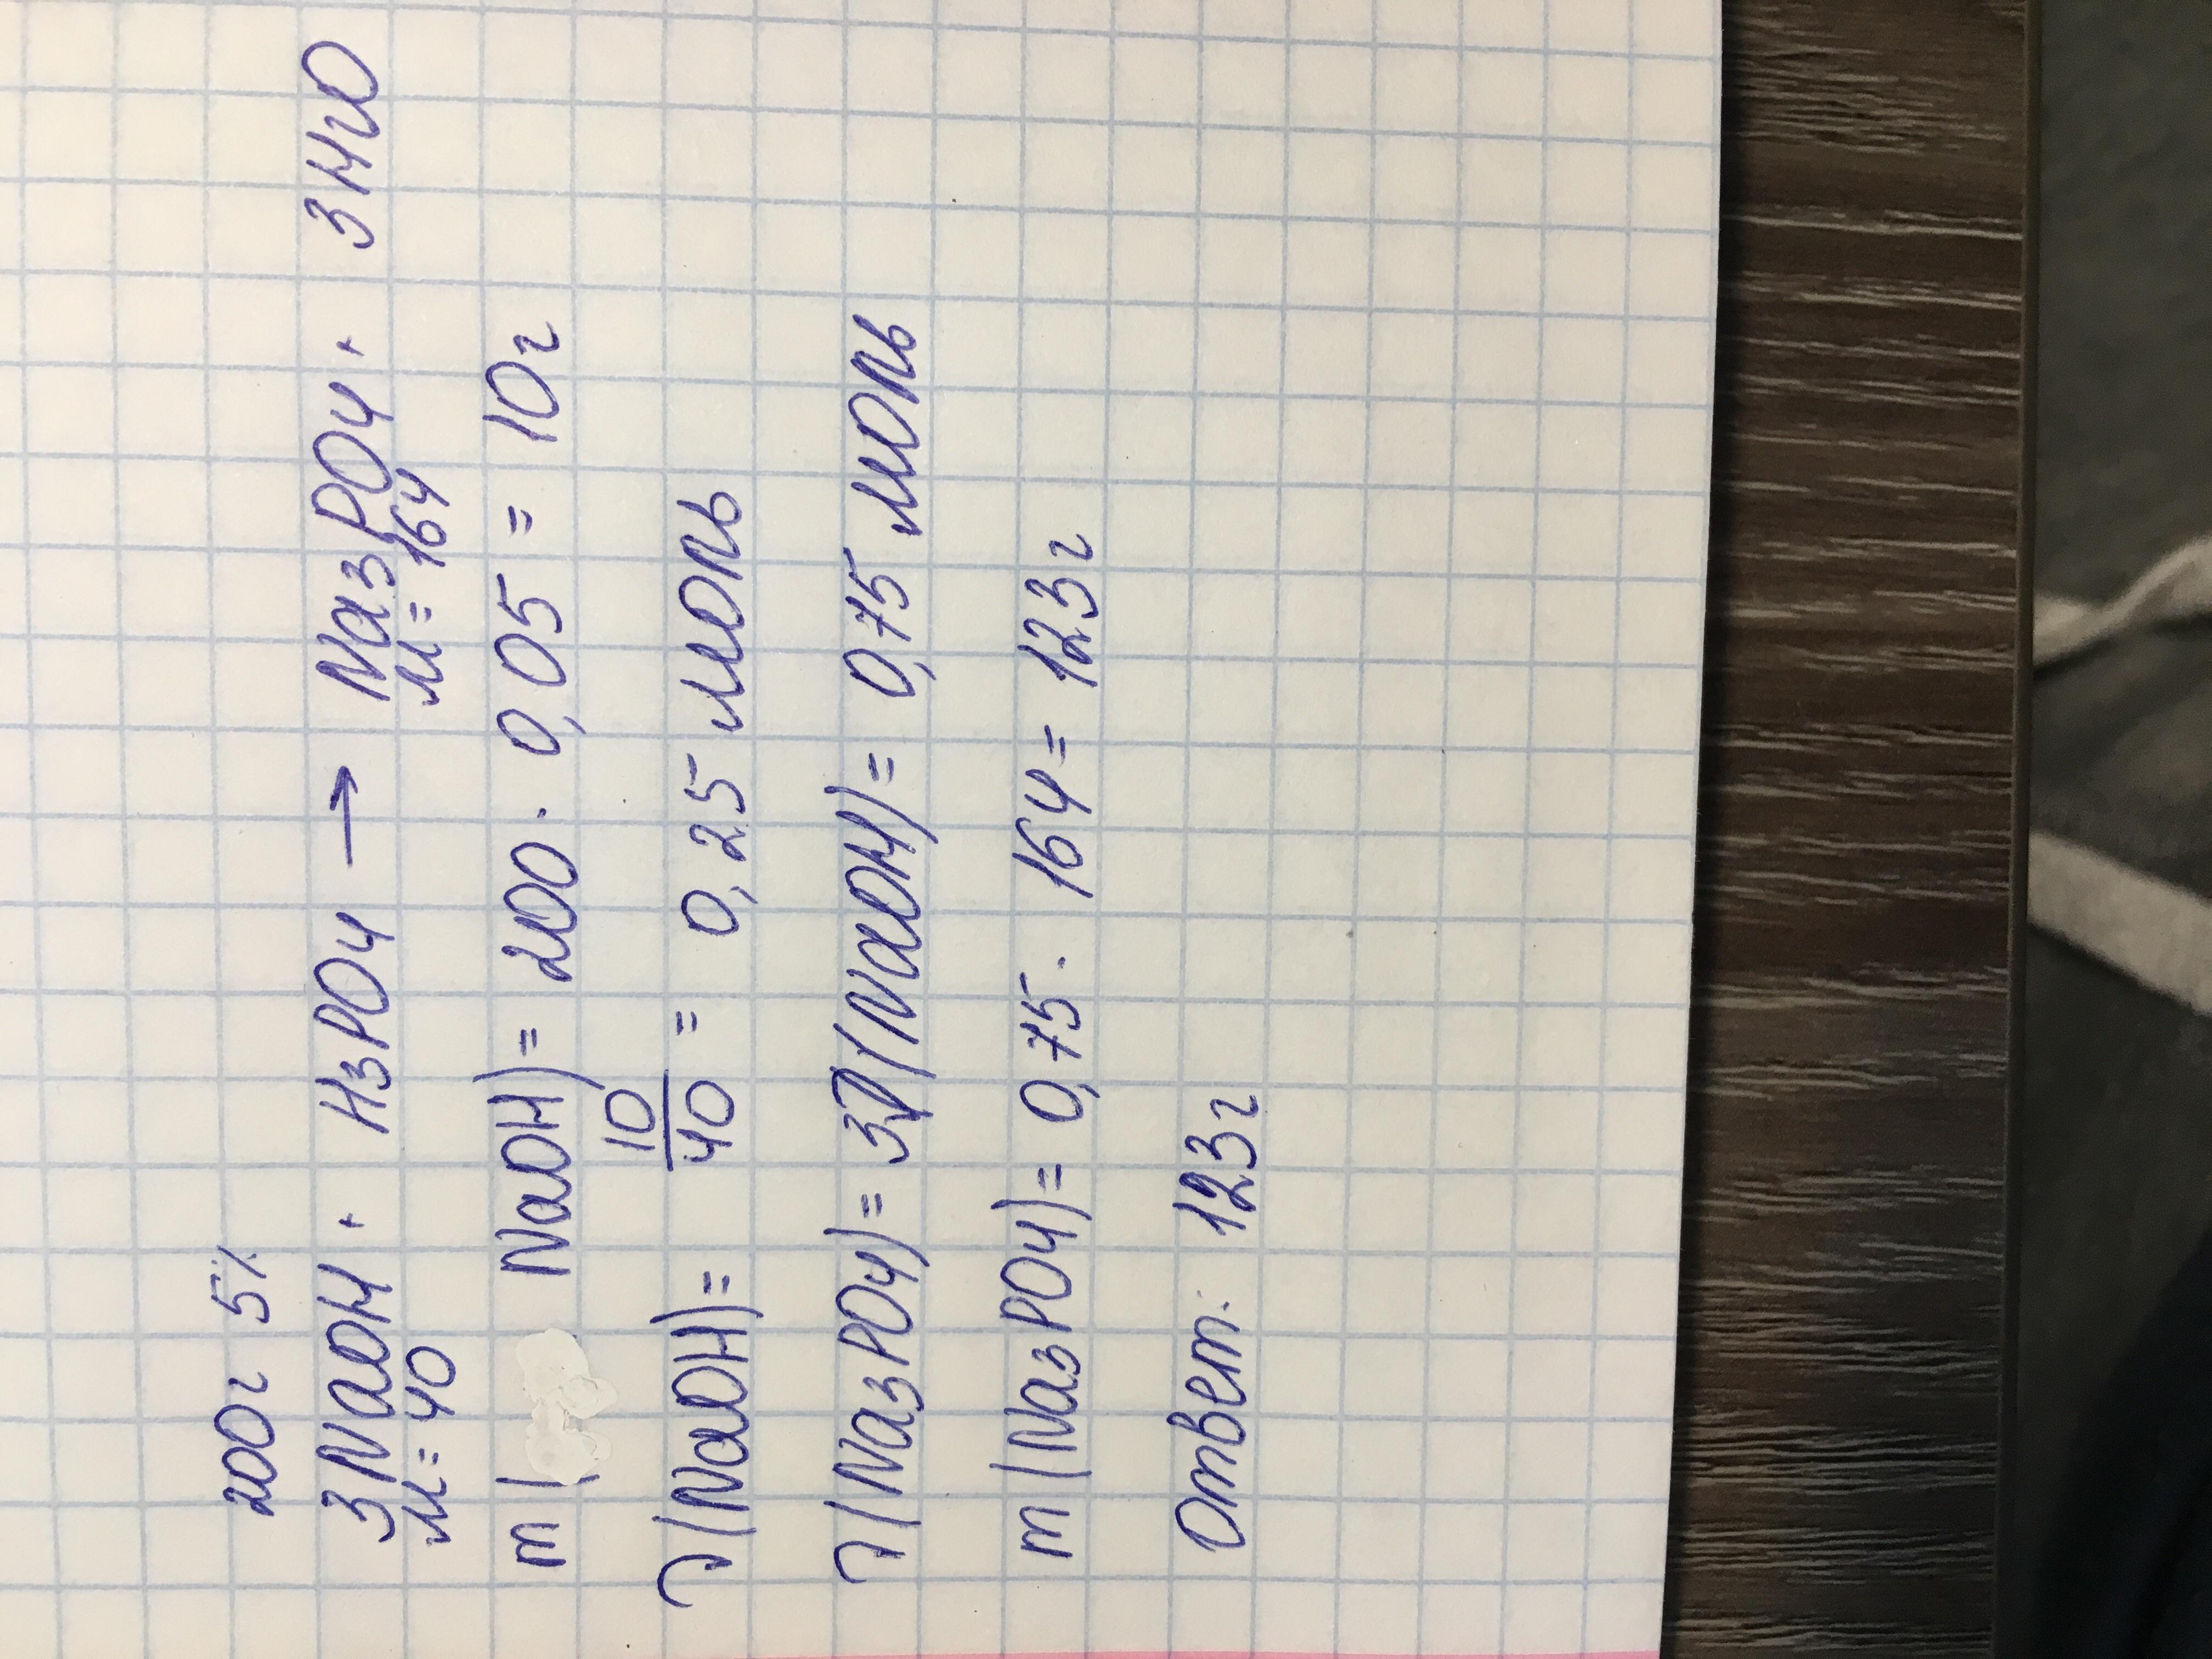 200г 5%
3NaOH + H3PO4 → Na3PO4 + 3H2O
M=40 M=164
m( NaOH) = 200 · 0,05 = 10г
ν(NaOH) = 10/40 = 0,25 моль
ν(Na3PO4) = 3ν(NaOH) = 0,75 моль
m(Na3PO4) = 0,75 · 164 = 123г
Ответ: 123г